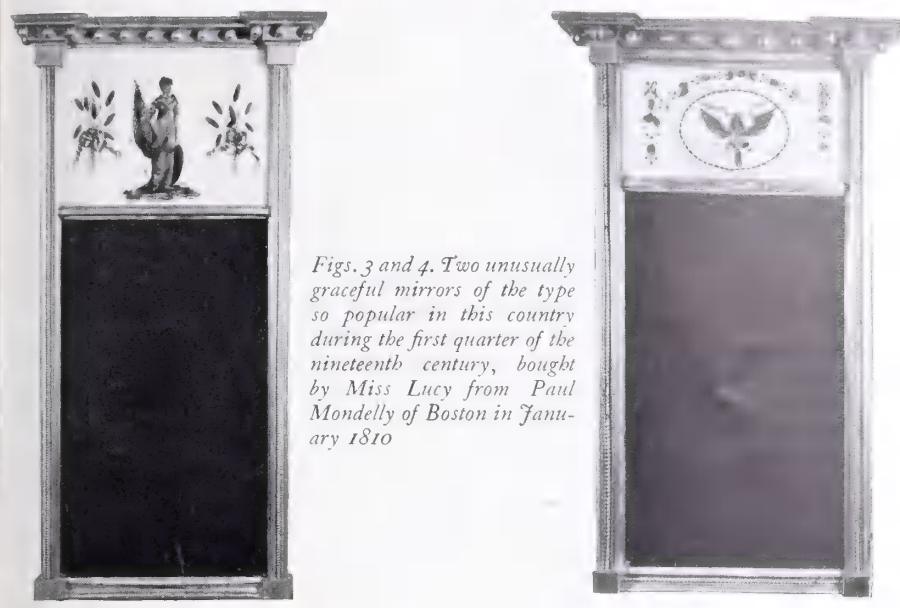 Figs. 3 and 4. Two unusually
graceful mirrors of the type
so popular in this country
during the first quarter of the
nineteenth century, bought
by Miss Lucy from Paul
Mondelly of Boston in Janu-
ary 1810